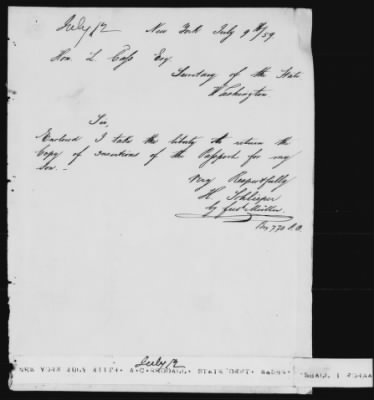 July 12
New York July 9th/59
Hon. L. Cass Esq
Secretary of the State
Washington
Sir,
Enclosed I take the liberty to return the
Copy of of the Passport for my
son. -
Very Respectfully
H Schlieper
by Fred Müller
Box 770 P.O.
July 12
NEW YORK JULY STATE DEPT.